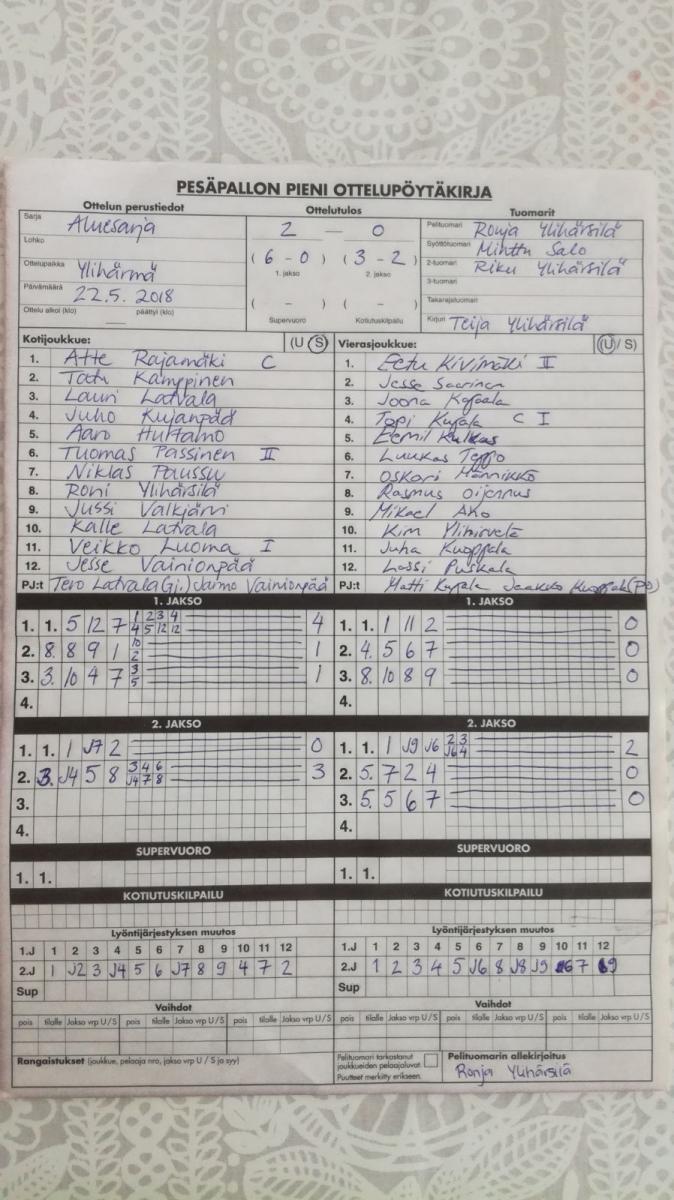 PESÄPALLON PIENI OTTELUPÖYTÄKIRJA
Ottelun perustiedot Ottelutulos Tuomarit
Sarja Aluesarja 2 — 0 Pelituomari Ronja Ylihärsilä
Lohko Syöttötuomari Minttu Salo
( 6 - 0 ) ( 3 - 2 )
1. jakso 2. jakso
Ottelupaikka Ylihärmä 2-tuomari Riku Ylihärsilä
3-tuomari
Päivämäärä 22.5. 2018 Takarajatuomari
( - ) ( - )
Ottelu alkoi (klo) päättyi (klo) Supervuoro Kotiutuskilpailu Kirjuri Teija Ylihärsilä
Kotijoukkue: (U S) Vierasjoukkue: (U / S)
1. Atte Rajamäki C 1. Eetu Kivimäki II
2. Tatu Kamppinen 2. Jesse Saarinen
3. Lauri Latvala 3. Joona
4. Juho Kujanpää 4. Topi Kujala C I
5. Aaro Huhtamo 5. Eemil Kulkas
6. Tuomas Passinen II 6. Luukas Teppo
7. Niklas Paussu 7. Oskari Männikkö
8. Roni Ylihärsilä 8. Rasmus Oijennus
9. Jussi Valkjärvi 9. Mikael Aho
10. Kalle Latvala 10. Kim Ylihirvelä
11. Veikko Luoma I 11. Juha Kuoppala
12. Jesse Vainionpää 12. Lassi Puskala
PJ:t Tero Latvala (Gj.) Jarmo Vainionpää PJ:t Matti Kujala Jaakko
1. JAKSO 1. JAKSO
1. 1. 5 12 7 1 2 3 4 4 1. 1. 1 11 2 0
4 5 12 12
2. 8. 8 9 1 10 2 1 2. 4. 5 6 7 0
3. 3. 10 4 7 3 5 1 3. 8. 10 8 9 0
4. 4.
2. JAKSO 2. JAKSO
1. 1. 1 J7 2 0 1. 1. 1 J9 J6 2 3 2
J6 4
2. 3. J4 5 8 3 4 6 3 2. 5. 7 2 4 0
J4 7 8
3. 3. 5. 5 6 7 0
4. 4.
SUPERVUORO SUPERVUORO
1. 1. 1. 1.
KOTIUTUSKILPAILU KOTIUTUSKILPAILU
Lyöntijärjestyksen muutos Lyöntijärjestyksen muutos
1.J 1 2 3 4 5 6 7 8 9 10 11 12 1.J 1 2 3 4 5 6 7 8 9 10 11 12
2.J 1 J2 3 J4 5 6 J7 8 9 4 7 2 2.J 1 2 3 4 5 J6 8 J8 J9 6 7 9
Sup Sup
Vaihdot Vaihdot
pois tilalle Jakso vrp U / S pois tilalle Jakso vrp U / S pois tilalle Jakso vrp U / S pois tilalle Jakso vrp U / S pois tilalle Jakso vrp U / S pois tilalle Jakso vrp U / S
Rangaistukset (joukkue, pelaaja nro, jakso vrp U / S ja syy) Pelituomari tarkastanut joukkueiden pelaajaluvat. Pelituomarin allekirjoitus
Puutteet merkitty erikseen. Ronja Ylihärsilä